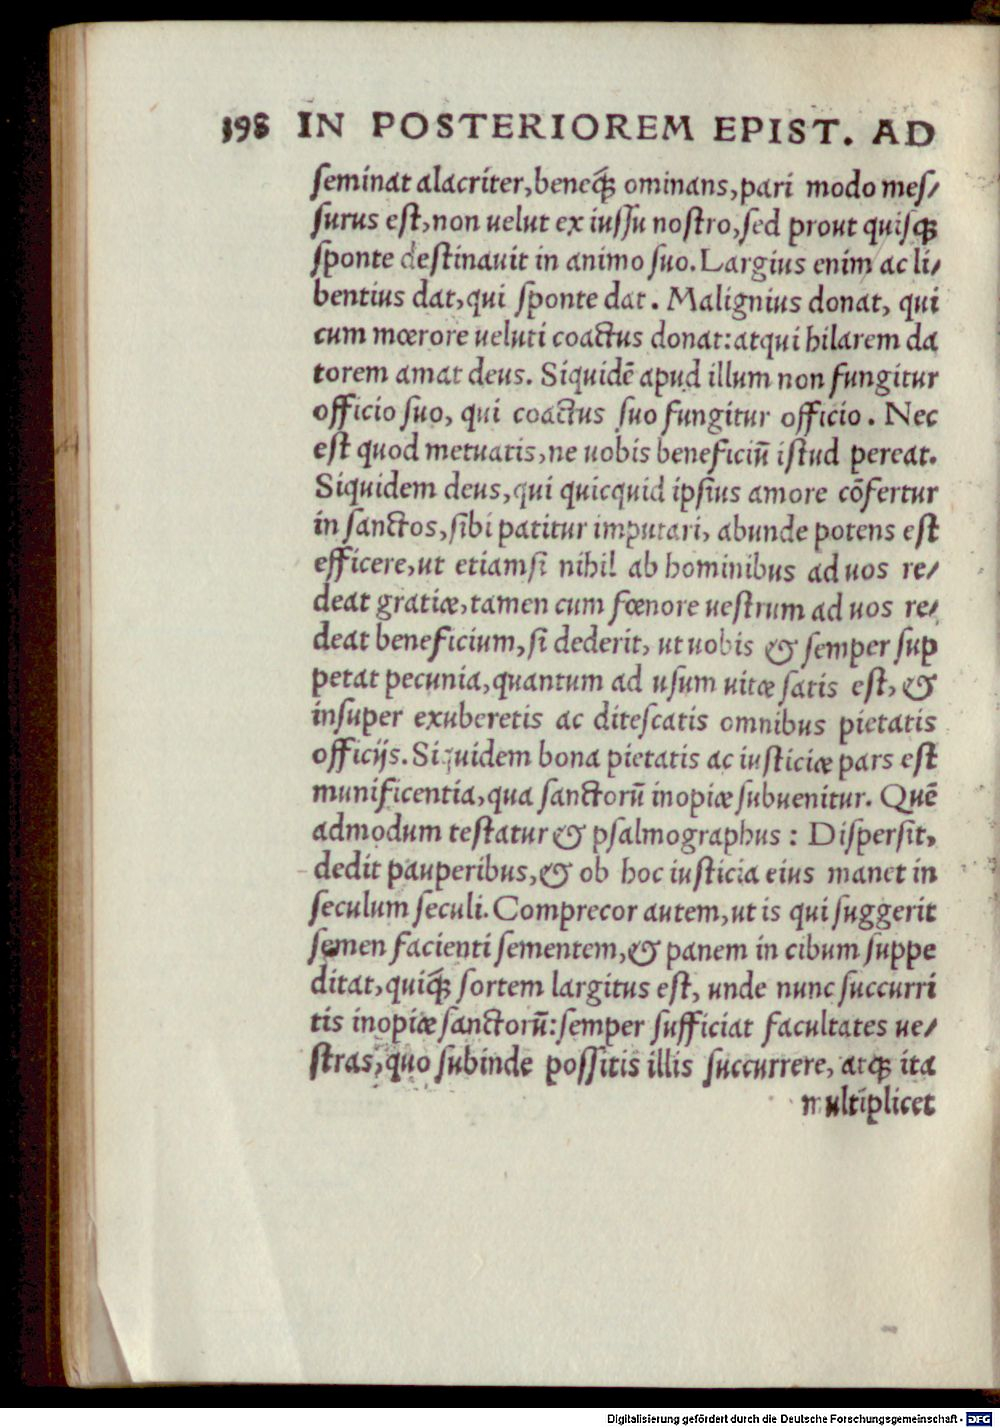 398 IN POSTERIOREM EPIST. AD
ſeminat alacriter, beneq́ꝫ ominans, pari modo meſ/
ſurus eſt, non uelut ex iuſſu noſtro, ſed prout quiſqꝫ
ſponte deſtinauit in animo ſuo. Largius enim ac li/
bentius dat, qui ſponte dat. Malignius donat, qui
cum mœrore ueluti coactus donat: atqui hilarem da
torem amat deus. Siquidē apud illum non fungitur
officio ſuo, qui coactus ſuo fungitur officio. Nec
eſt quod metuatis, ne uobis beneficiū iſtud pereat.
Siquidem deus, qui quicquid ipſius amore cōfertur
in ſanctos, ſibi patitur imputari, abunde potens eſt
efficere, ut etiamſi nihil ab hominibus ad uos re/
deat gratiæ, tamen cum fœnore ueſtrum ad uos re/
deat beneficium, ſi dederit, ut uobis & ſemper ſup
petat pecunia, quantum ad uſum uitæ ſatis eſt, &
inſuper exuberetis ac diteſcatis omnibus pietatis
officijs. Siquidem bona pietatis ac iuſticiæ pars eſt
munificentia, qua ſanctorū inopiæ ſubuenitur. Quē
admodum teſtatur & pſalmographus: Diſperſit,
dedit pauperibus, & ob hoc iuſticia eius manet in
ſeculum ſeculi. Comprecor autem, ut is qui ſuggerit
ſemen facienti ſementem, & panem in cibum ſuppe
ditat, quiq́ꝫ ſortem largitus eſt, unde nunc ſuccurri
tis inopiæ ſanctorū: ſemper ſufficiat facultates ue/
ſtras, quo ſubinde poſſitis illis ſuccurrere, atqꝫ ita
multiplicet
Digitalisierung gefördert durch die Deutsche Forschungsgemeinschaft - DFG